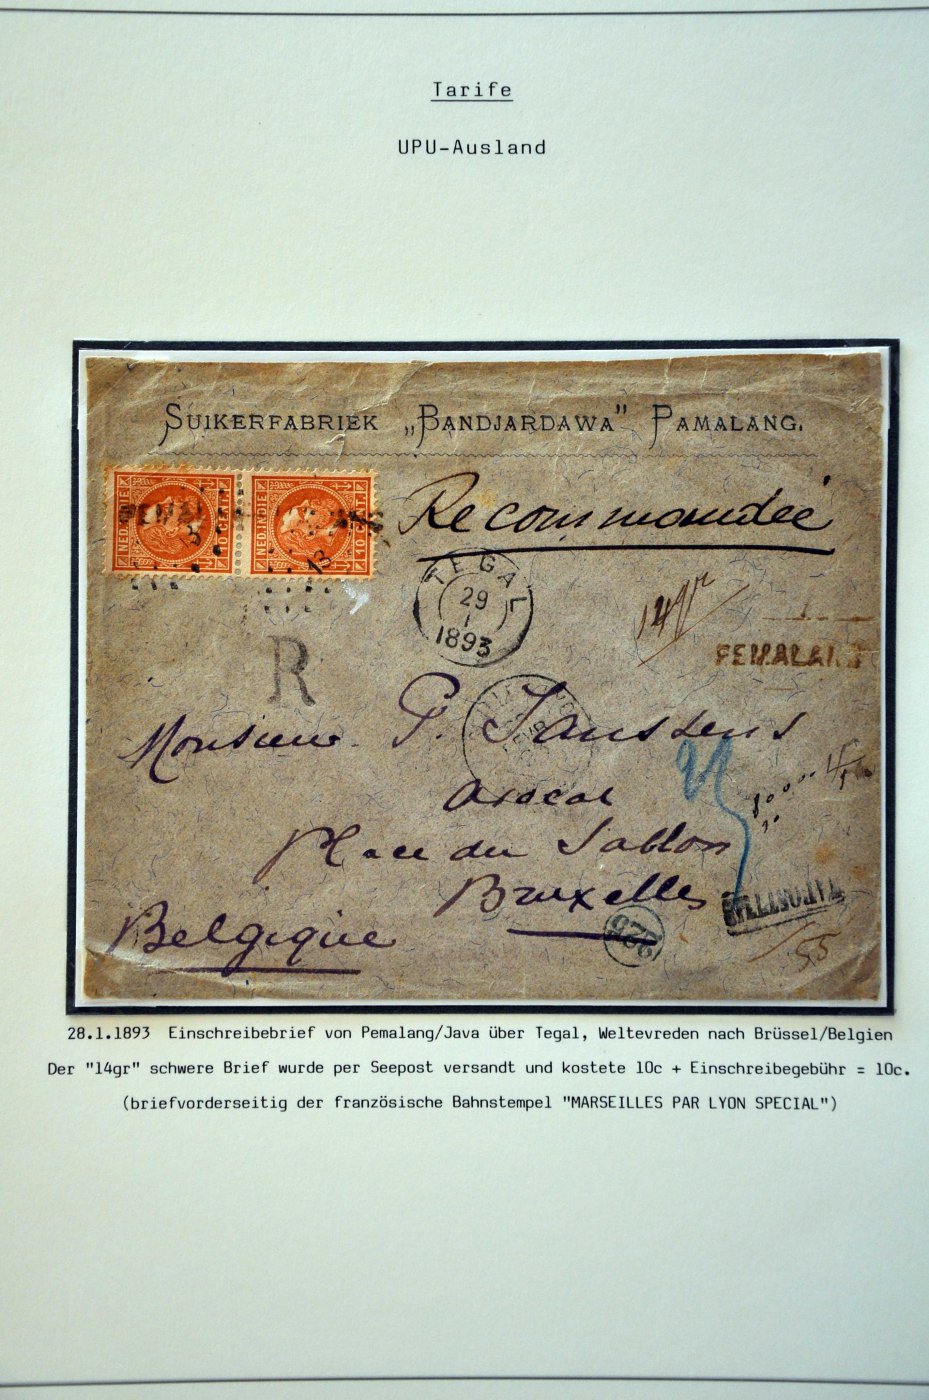 Tarife
UPU-Ausland
SUIKERFABRIEK „BANDJARDAWA" PAMALANG.
NED. INDIE 10 CENT. NED. INDIE 10 CENT.
Recommandée
TEGAL
29
1
1893
14 gr
PEMALANG
R
Monsieur P. Janssens
Avocat
Place du Sablon
Bruxelles
Belgique
225
55
28.1.1893 Einschreibebrief von Pemalang/Java über Tegal, Weltevreden nach Brüssel/Belgien
Der "14gr" schwere Brief wurde per Seepost versandt und kostete 10c + Einschreibegebühr = 10c.
(briefvorderseitig der französische Bahnstempel "MARSEILLES PAR LYON SPECIAL")